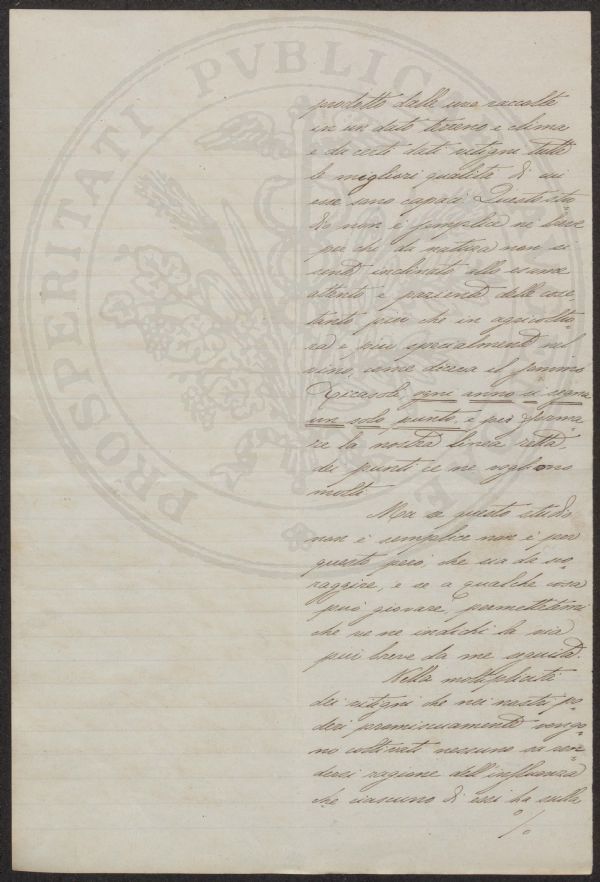 PROSPERITATI PVBLICAE
prodotto dalle uve raccolte
in un dato terreno e clima
e da certi dati vitigni tutte
le migliori qualità di cui
esse sono capaci. Questo stu
dio non è semplice ne breve
per chi di natura non si
sente inclinato allo esame
attento e paziente delle cose
tanto più che in agricoltu=
ra e più specialmente nel
vino, come diceva il
Ricasoli, ogni anno si segna
un solo punto, e per forma
re la nostra linea retta,
dei punti ce ne vogliono
molti
Ma se questo studio
non è semplice non è per
questo però che sia da sco=
raggire, e se a qualche cosa
può giovare, permettetemi
che ve ne indichi la via
più breve da me seguita.
Nella moltiplicità
dei vitigni che nei nostri po=
deri promiscuamente vengo=
no coltivati nessuno sa ren=
dersi ragione dell'influenza
che ciascuno di essi ha sulla
%